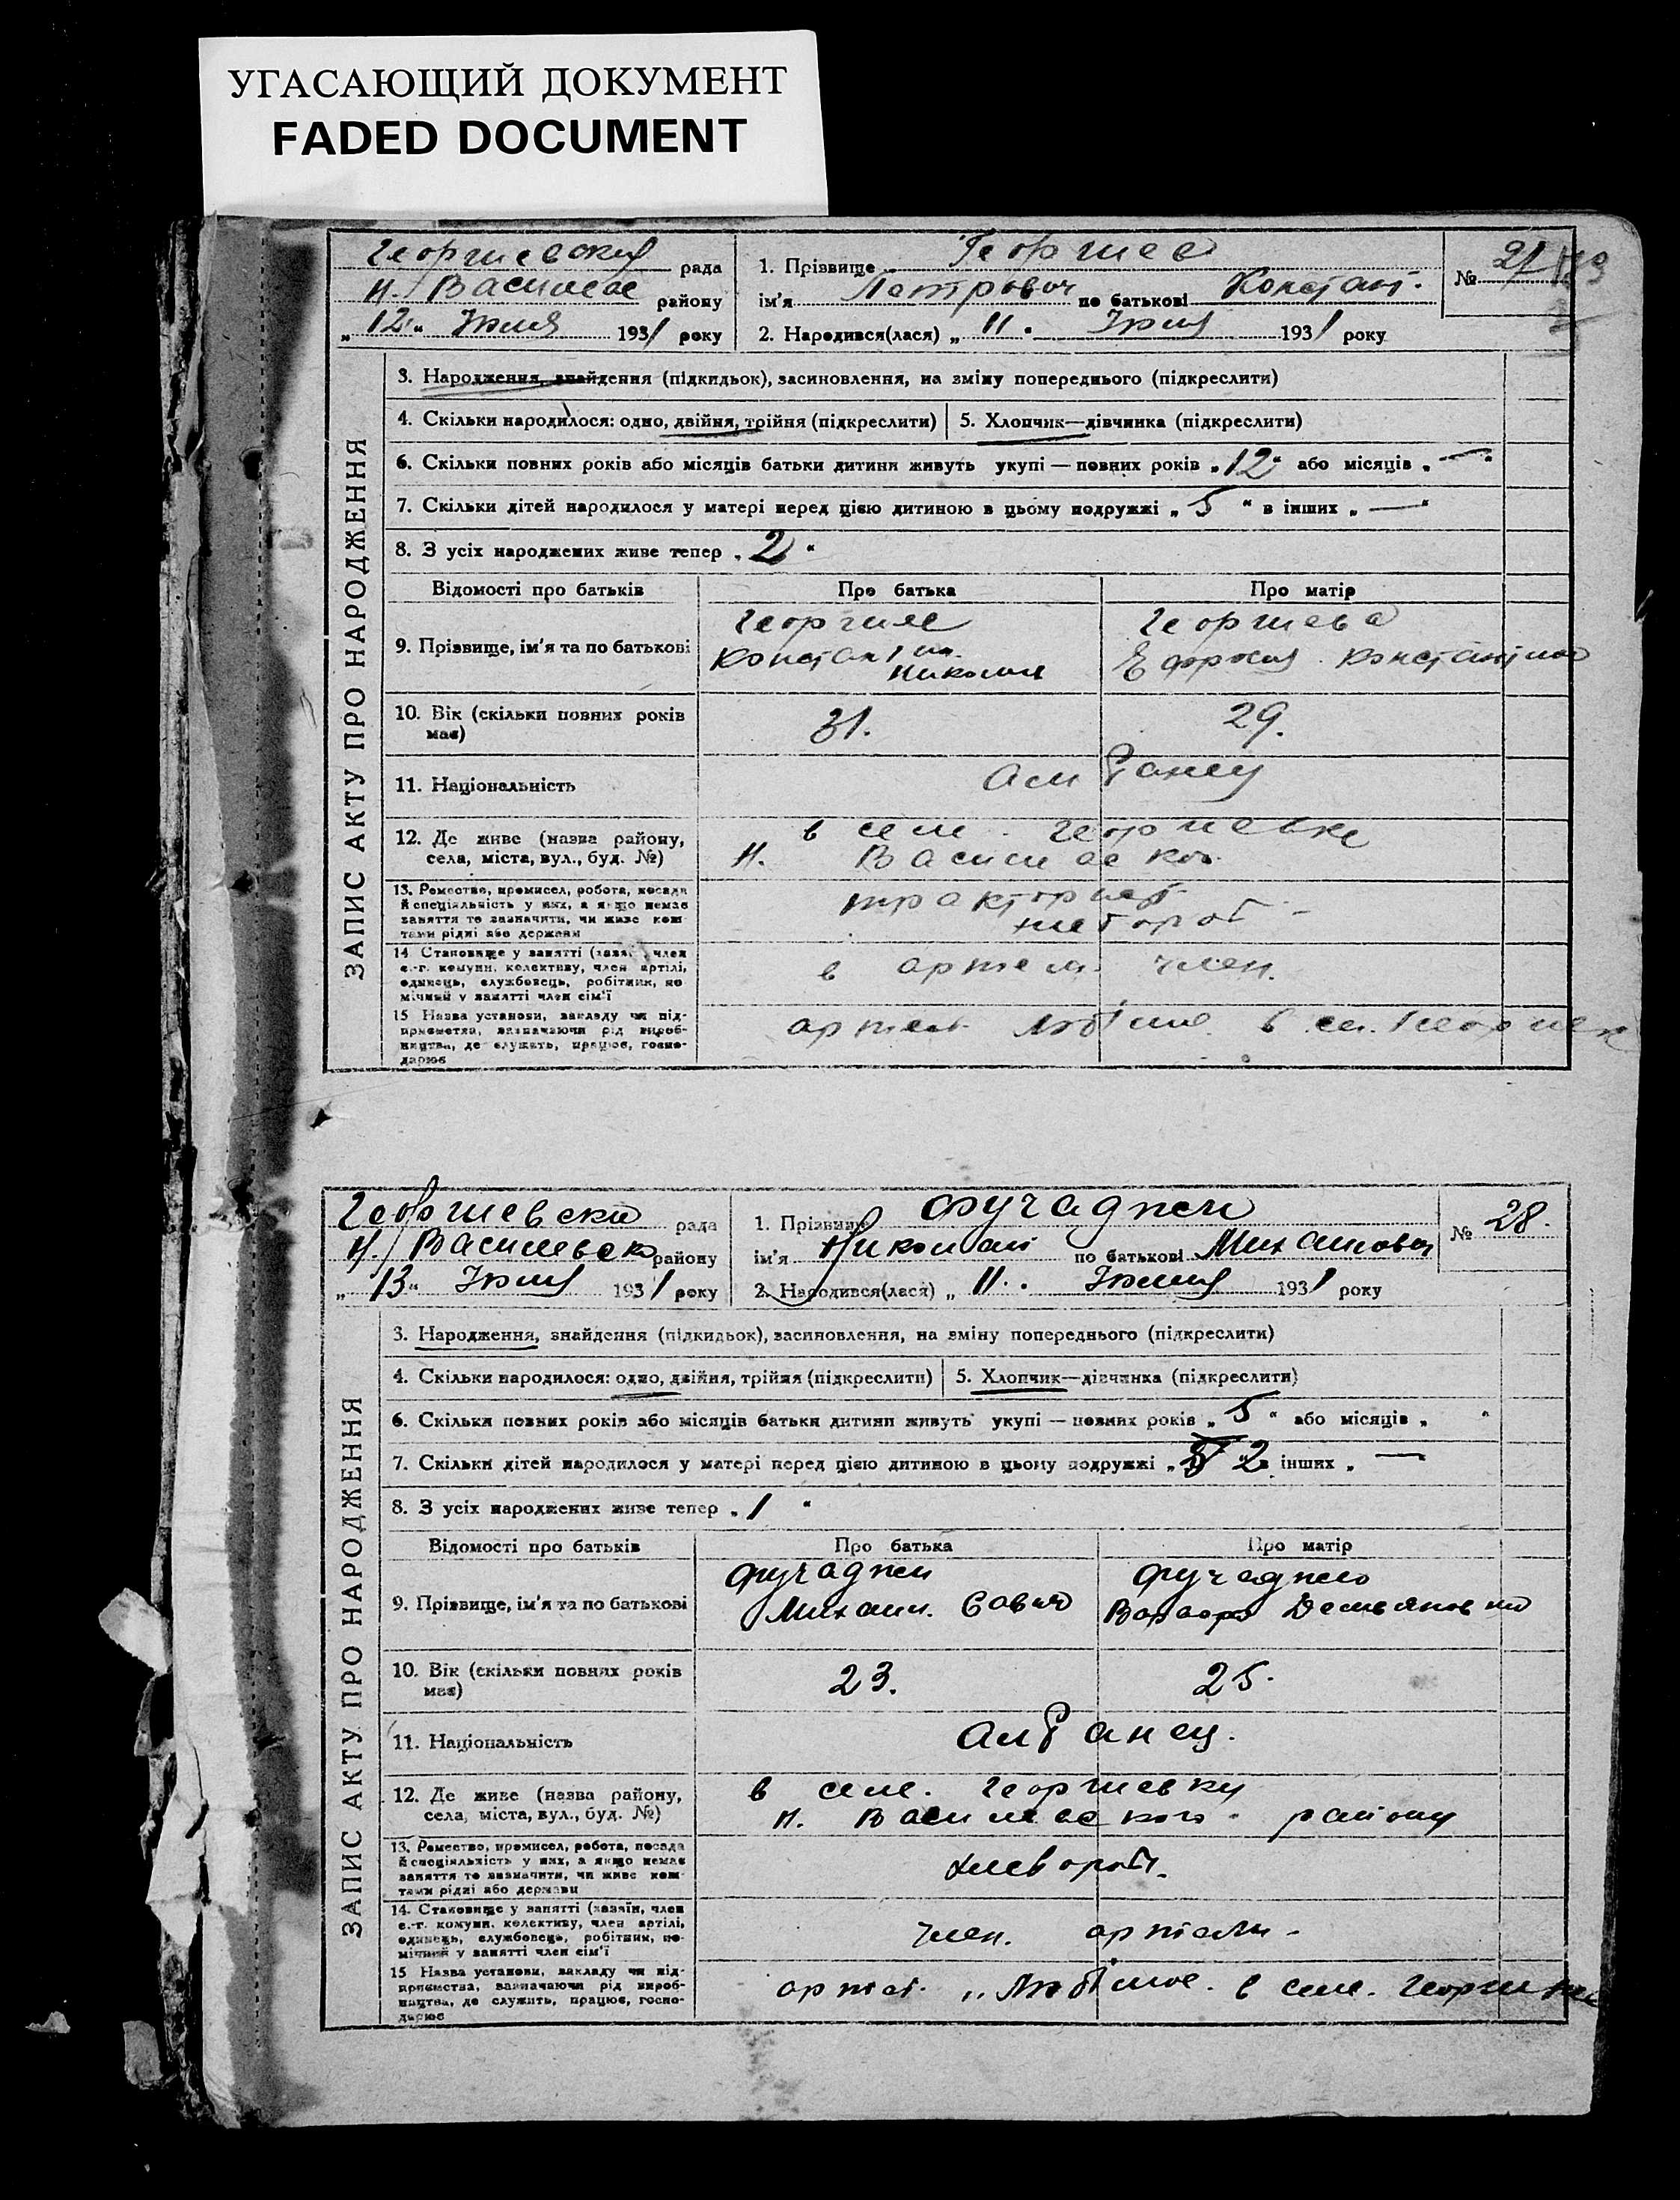 УГАСАЮЩИЙ ДОКУМЕНТ
FADED DOCUMENT
Георгиевский рада
Н. Василев районy
„12“ Июля 1931 року
1. Прізвище Георгиев
ім'я Петрович по батькові Констант.
2. Народився(лася) „11. Июля 1931 року
№
ЗАПИС АКТУ ПРО НАРОДЖЕННЯ
3. Народження, знайдення (підкидьок), засиновлення, на зміну попереднього (підкреслити)
4. Скільки народилося: одно, двійня, трійня (підкреслити)
5. Хлопчик—дівчинка (підкреслити)
6. Скільки повних років або місяців батьки дитини живуть укупі — повних років „12“ або місяців „—“
7. Скільки дітей народилося у матері перед цією дитиною в цьому подружжі „5“ в інших „—“
8. З усіх народжених живе тепер „2“
Відомості про батьків
Про батька
Про матір
9. Прізвище, ім'я та по батькові
Георгиев
Констант
Никола
Георгиева
Константинов
10. Вік (скільки повних років має)
31.
29.
11. Національність
Албанец
12. Де живе (назва району, села, міста, вул., буд. №)
в селе. Георгиевке
Н. Василевско
13. Ремество, промисел, робота, посада й спеціяльність у них, а якщо немає заняття то зазначити, чи живе коштами рідні або держави
тракторист
хлебороб -
14 Становище у занятті (хазяїн, член с.-г. комуни, колективу, член артілі, одинець, службовець, робітник, помічний у занятті член сім'ї
в артели член.
15 Назва установи, закладу чи підприємства, зазначаючи рід виробництва, де служить, працює, господарює
артель в се. Георгиев
Георгиевски рада
Н. Василевско району
„13“ Июля 1931 року
1. Прізвище Фучаджи
ім'я Николай по батькові Михайлович
2. Народився(лася) „11. Июля 1931 року
№ 28.
ЗАПИС АКТУ ПРО НАРОДЖЕННЯ
3. Народження, знайдення (підкидьок), засиновлення, на зміну попереднього (підкреслити)
4. Скільки народилося: одно, двійня, трійня (підкреслити)
5. Хлопчик—дівчинка (підкреслити)
6. Скільки повних років або місяців батьки дитини живуть укупі — повних років „5“ або місяців „ “
7. Скільки дітей народилося у матері перед цією дитиною в цьому подружжі „2 інших „—
8. З усіх народжених живе тепер „1“
Відомості про батьків
Про батька
Про матір
9. Прізвище, ім'я та по батькові
Фучаджи
Михаил. Савич
Фучаджи
Варвара Демьяновна
10. Вік (скільки повних років має)
23.
25.
11. Національність
Албанец.
12. Де живе (назва району, села, міста, вул., буд. №)
в селе. Георгиевку
Н. Василевского. району
13. Ремество, промисел, робота, посада й спеціяльність у них, а якщо немає заняття то зазначити, чи живе коштами рідні або держави
хлебороб.
14. Становище у занятті (хазяїн, член с.-г. комуни, колективу, член артілі, одинець, службовець, робітник, помічний у занятті член сім'ї
член. артели -
15 Назва установи, закладу чи підприємства, зазначаючи рід виробництва, де служить, працює, господарює
артел. в селе. Георгиевке